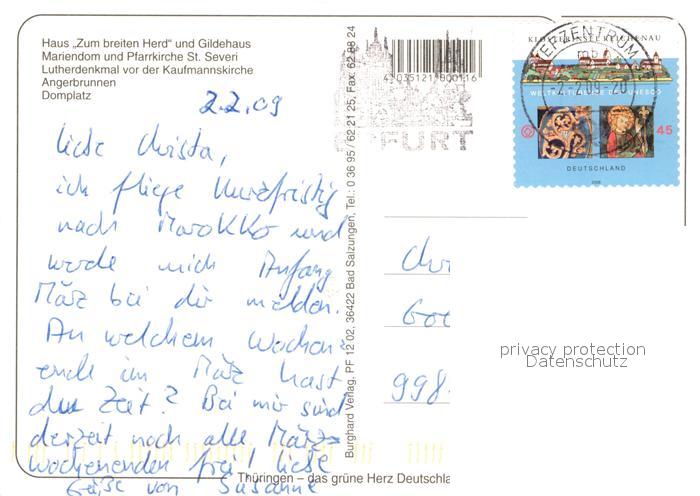 Haus „Zum breiten Herd“ und Gildehaus
Mariendom und Pfarrkirche St. Severi
Lutherdenkmal vor der Kaufmannskirche
Angerbrunnen
Domplatz
2.2.09
liebe Christa,
ich fliege kurzfristig
nach Marokko und
werde mich Anfang
März bei dir melden.
An welchem Wochen-
ende im März hast
du Zeit? Bei mir sind
derzeit noch alle März-
wochenenden frei! liebe
Grüße von Susanne
Burghard Verlag, PF 12 02, 36422 Bad Salzungen, Tel.: 0 36 95 / 62 21 25, Fax: 62 88 24
4 035121 800116
ERFURT
KLOSTERINSEL REICHENAU
BRIEFZENTRUM
mb
-2.2.09-20
WELTKULTURERBE DER UNESCO
45
DEUTSCHLAND
2008
998
privacy protection
Datenschutz
Thüringen – das grüne Herz Deutschla